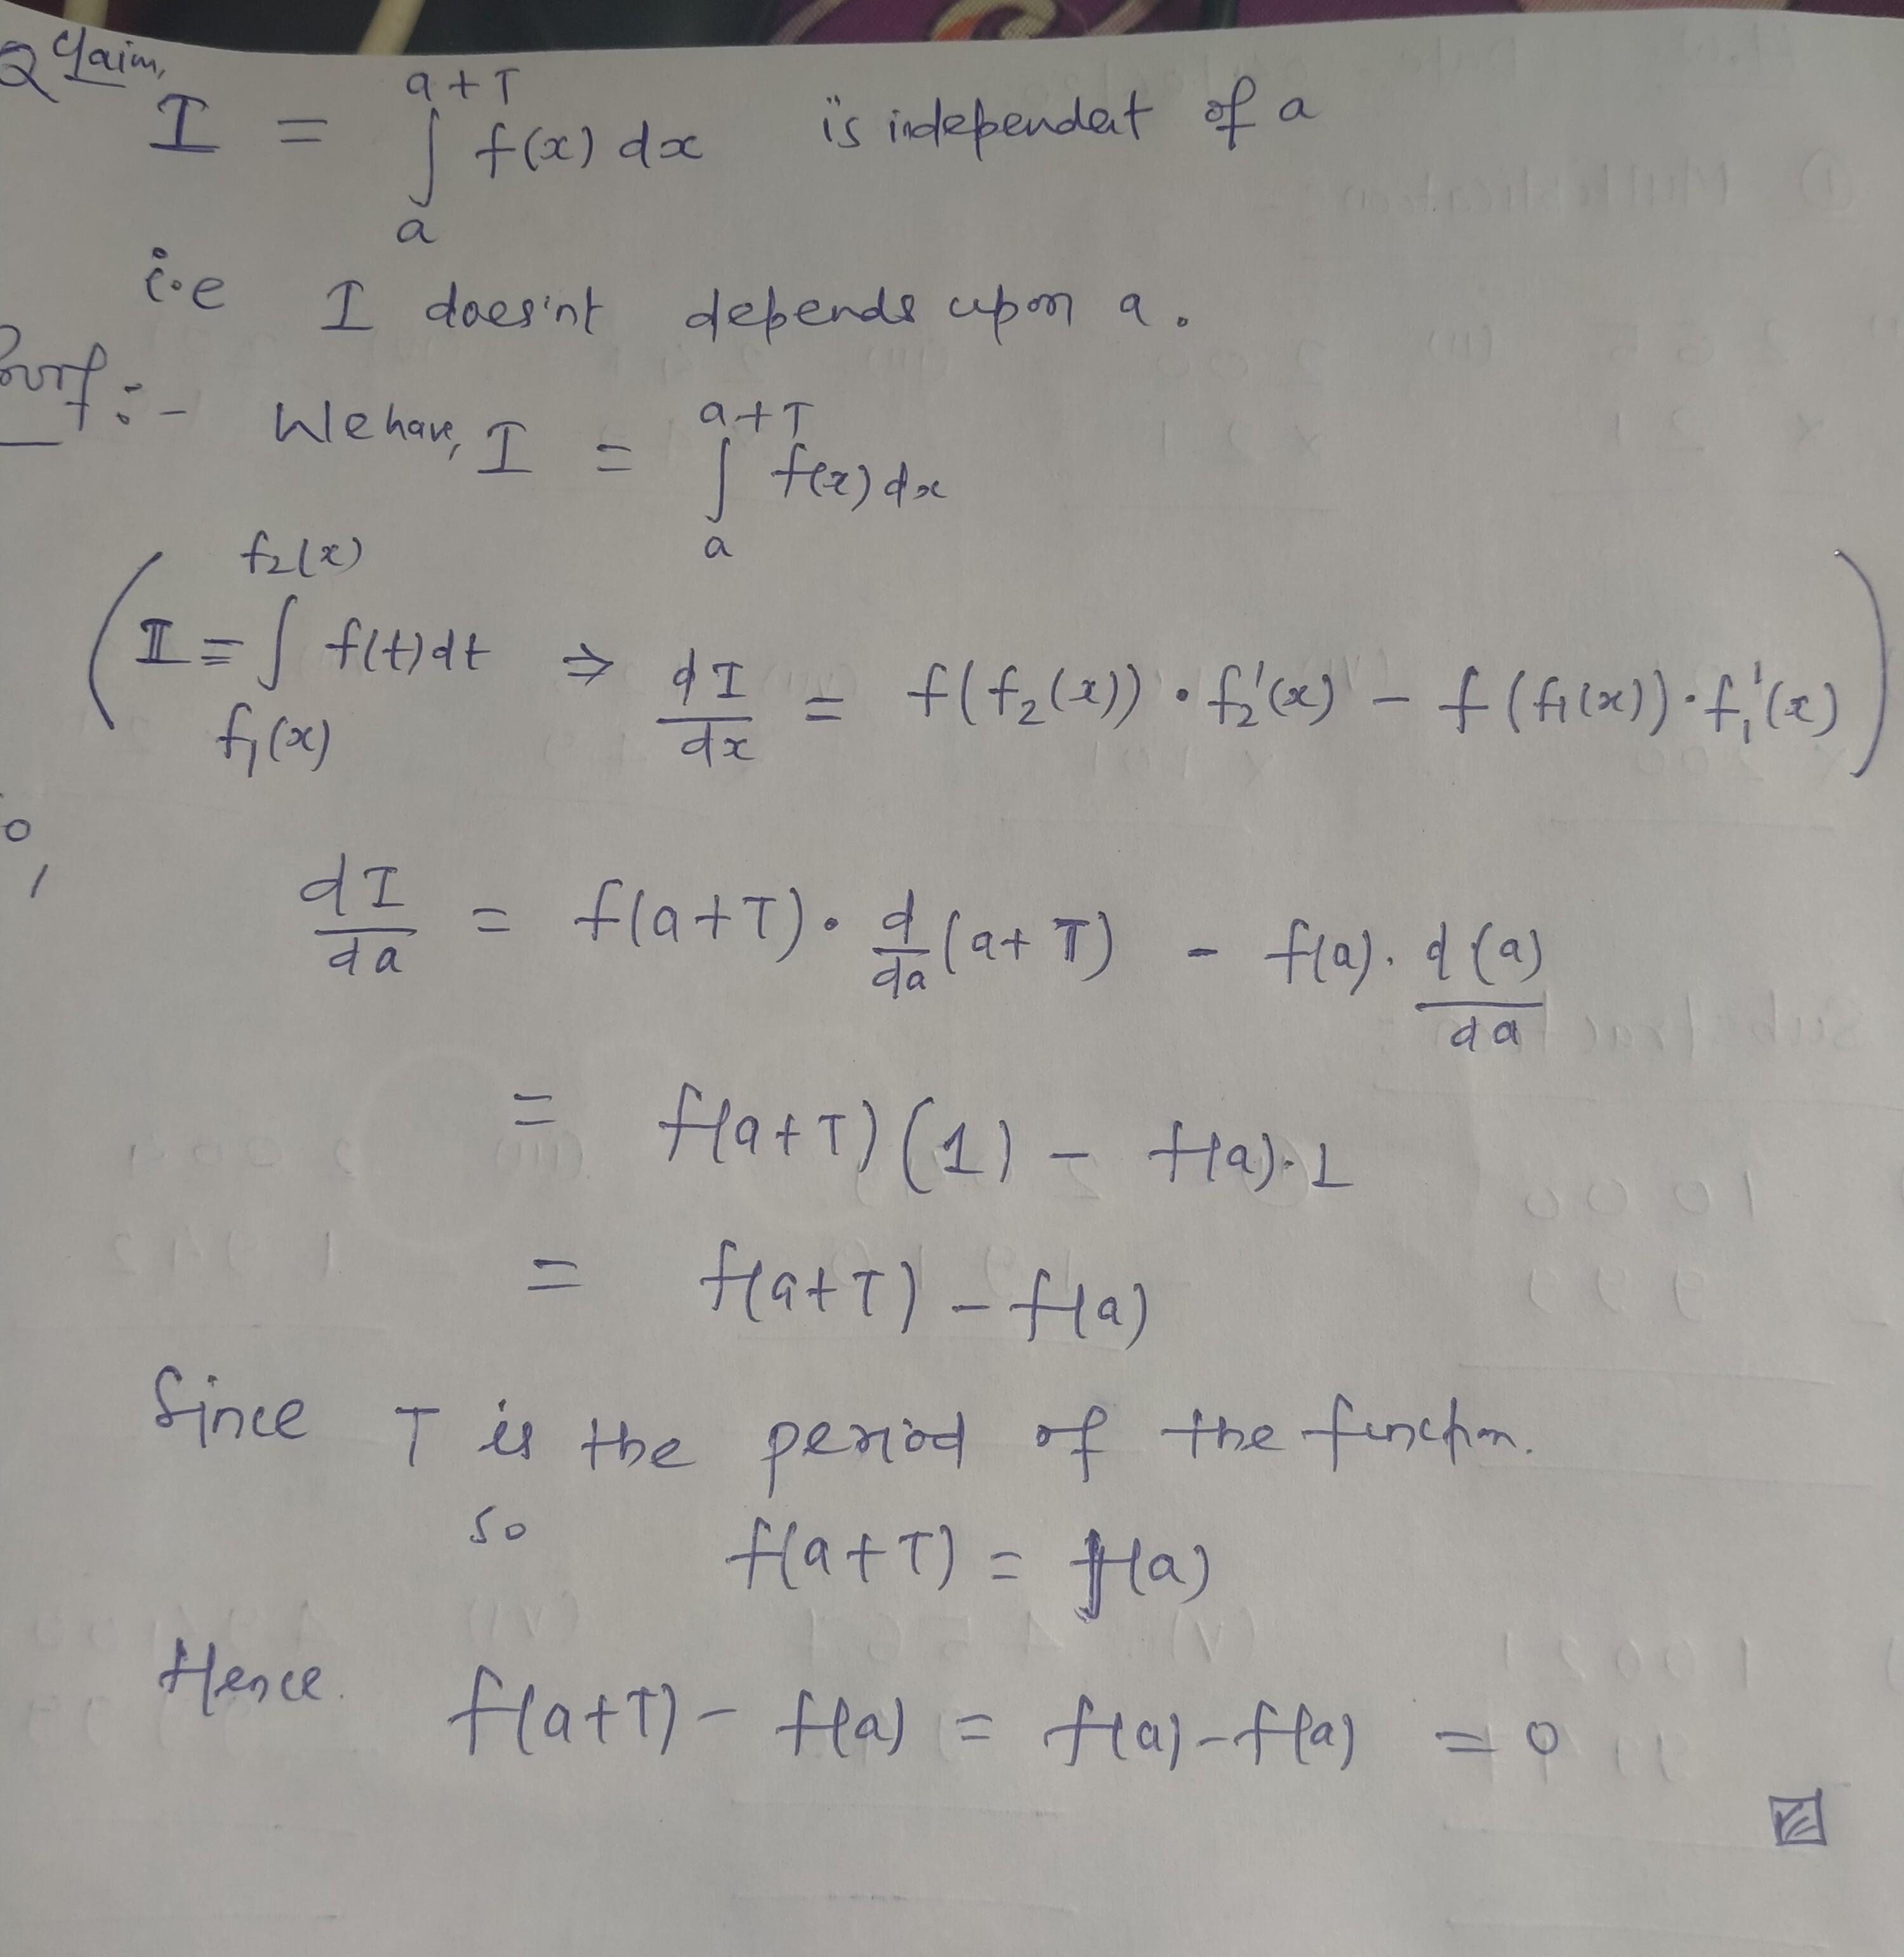 Q Claim,
I = ∫ₐ^(a+T) f(x) dx is independent of a
i.e I does'nt depends upon a.
Proof :- We have, I = ∫ₐ^(a+T) f(x) dx
( I = ∫_(f₁(x))^(f₂(x)) f(t) dt ⇒ dI/dx = f(f₂(x)) · f₂'(x) - f(f₁(x)) · f₁'(x) )
dI/da = f(a+T) · d/da (a+T) - f(a) · d(a)/da
= f(a+T) (1) - f(a) · 1
= f(a+T) - f(a)
Since T is the period of the function.
so f(a+T) = f(a)
Hence. f(a+T) - f(a) = f(a) - f(a) = 0